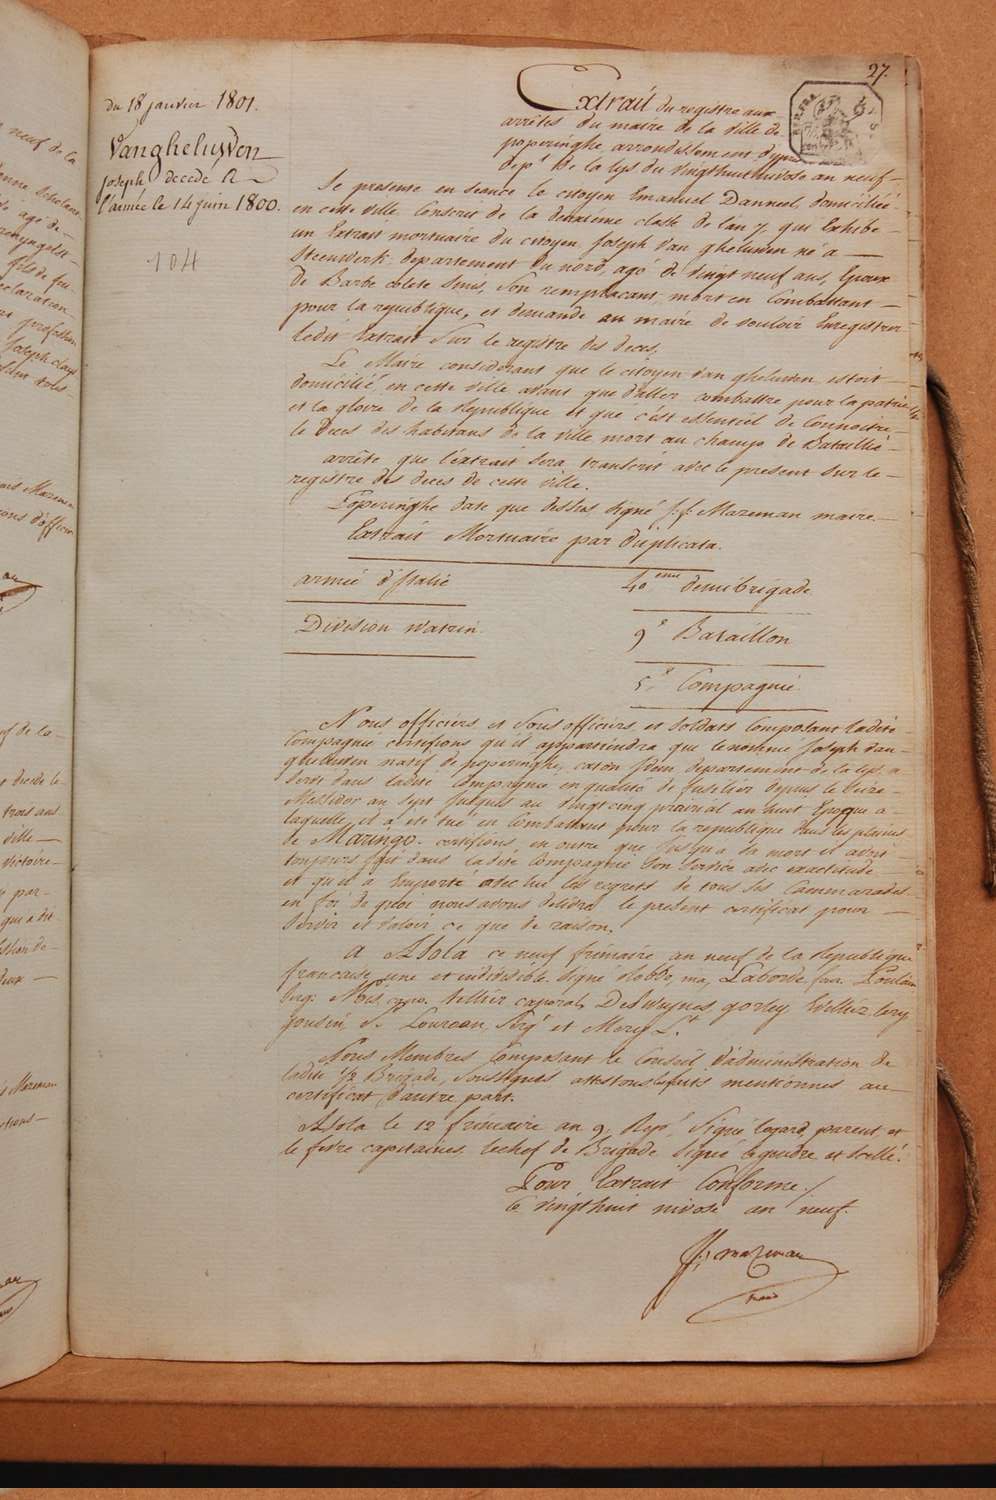 27.
du 18 janvier 1801.
Vangheluwen
joseph decede a
l'armée le 14 juin 1800.
104
Extrait du registre aux
arrêtés du maire de la ville de
poperinghe, arrondissement d'ypres
dept de la lys du vingthuit nivose an neuf
Se presente en seance le citoyen Emanuel Danneel, domicilié
en cette ville Conscrit de la deuxième classe de l'an 7, qui Exhibe
un Extrait mortuaire du citoyen Joseph van gheluwen né a
Steenwerk departement du nord, agé de vingt neuf ans, Epoux
de Barbe colete Smis, Son remplacant, mort en Combattant
pour la republique, et demande au maire de vouloir Enregistrer
ledit Extrait Sur le registre des deces;
Le Maire considerant que le citoyen van gheluwen etoit
domicilié en cette ville avant que d'aller combattre pour la patrie
et la gloire de la Republique et que c'est essentiel de Connoitre
le deces des habitans de la ville mort au champ de Bataille
arrête que l'extrait Sera transcrit avec le present Sur le
registre des deces de cette ville.
Poperinghe date que dessus signé f: f: Mazeman maire.
Extrait Mortuaire par duplicata.
armée d'Italie
40eme demibrigade
Division watrin
9e Bataillon
5e Compagnie
Nous officiers et Sous officiers et Soldats Composant ladite
Compagnie certifions qu'il appartiendra que le nommé Joseph van
gheluwen natif de poperinghe, caton Idem, departement de la lys, a
servi dans ladite Compagnie en qualité de fusilier depuis le
Messidor an sept jusques au vingt cinq prairial an huit Epoque a
laquelle il a été tué en Combattant pour la republique dans les plaines
de Maringo. certifions, en outre que jusqu'a sa mort il avoit
toujours fait dans ladite Compagnie Son Service avec exactitude
et qu'il a Emporté avec lui les regrets de tous Ses Cammarades
en foi de quoi nous avons delivré le present certificat pour
Servir et valoir ce que de raison.
A Asola ce neuf frimaire an neuf de la Republique
francaise une et indivisible. Signe Labbé, ma, Laborde, four Poulain
Serg: tellier caporal, Deswaynes, gorley
Loureau, Sergt et Mery Lt
Nous Membres Composant le Conseil d'administration de
ladite 1/2 Brigade, Soussignés attestons les faits mentionnés au
certificat d'autre part.
Asola le 12 frimaire an 9: Rep: Signé legard, parent, et
le fevre capitaines. lechef de Brigade Signé legendre et Scellé.
Pour Extrait Conforme./
Le vingthuit nivose an neuf.
f: f: mazeman
maire